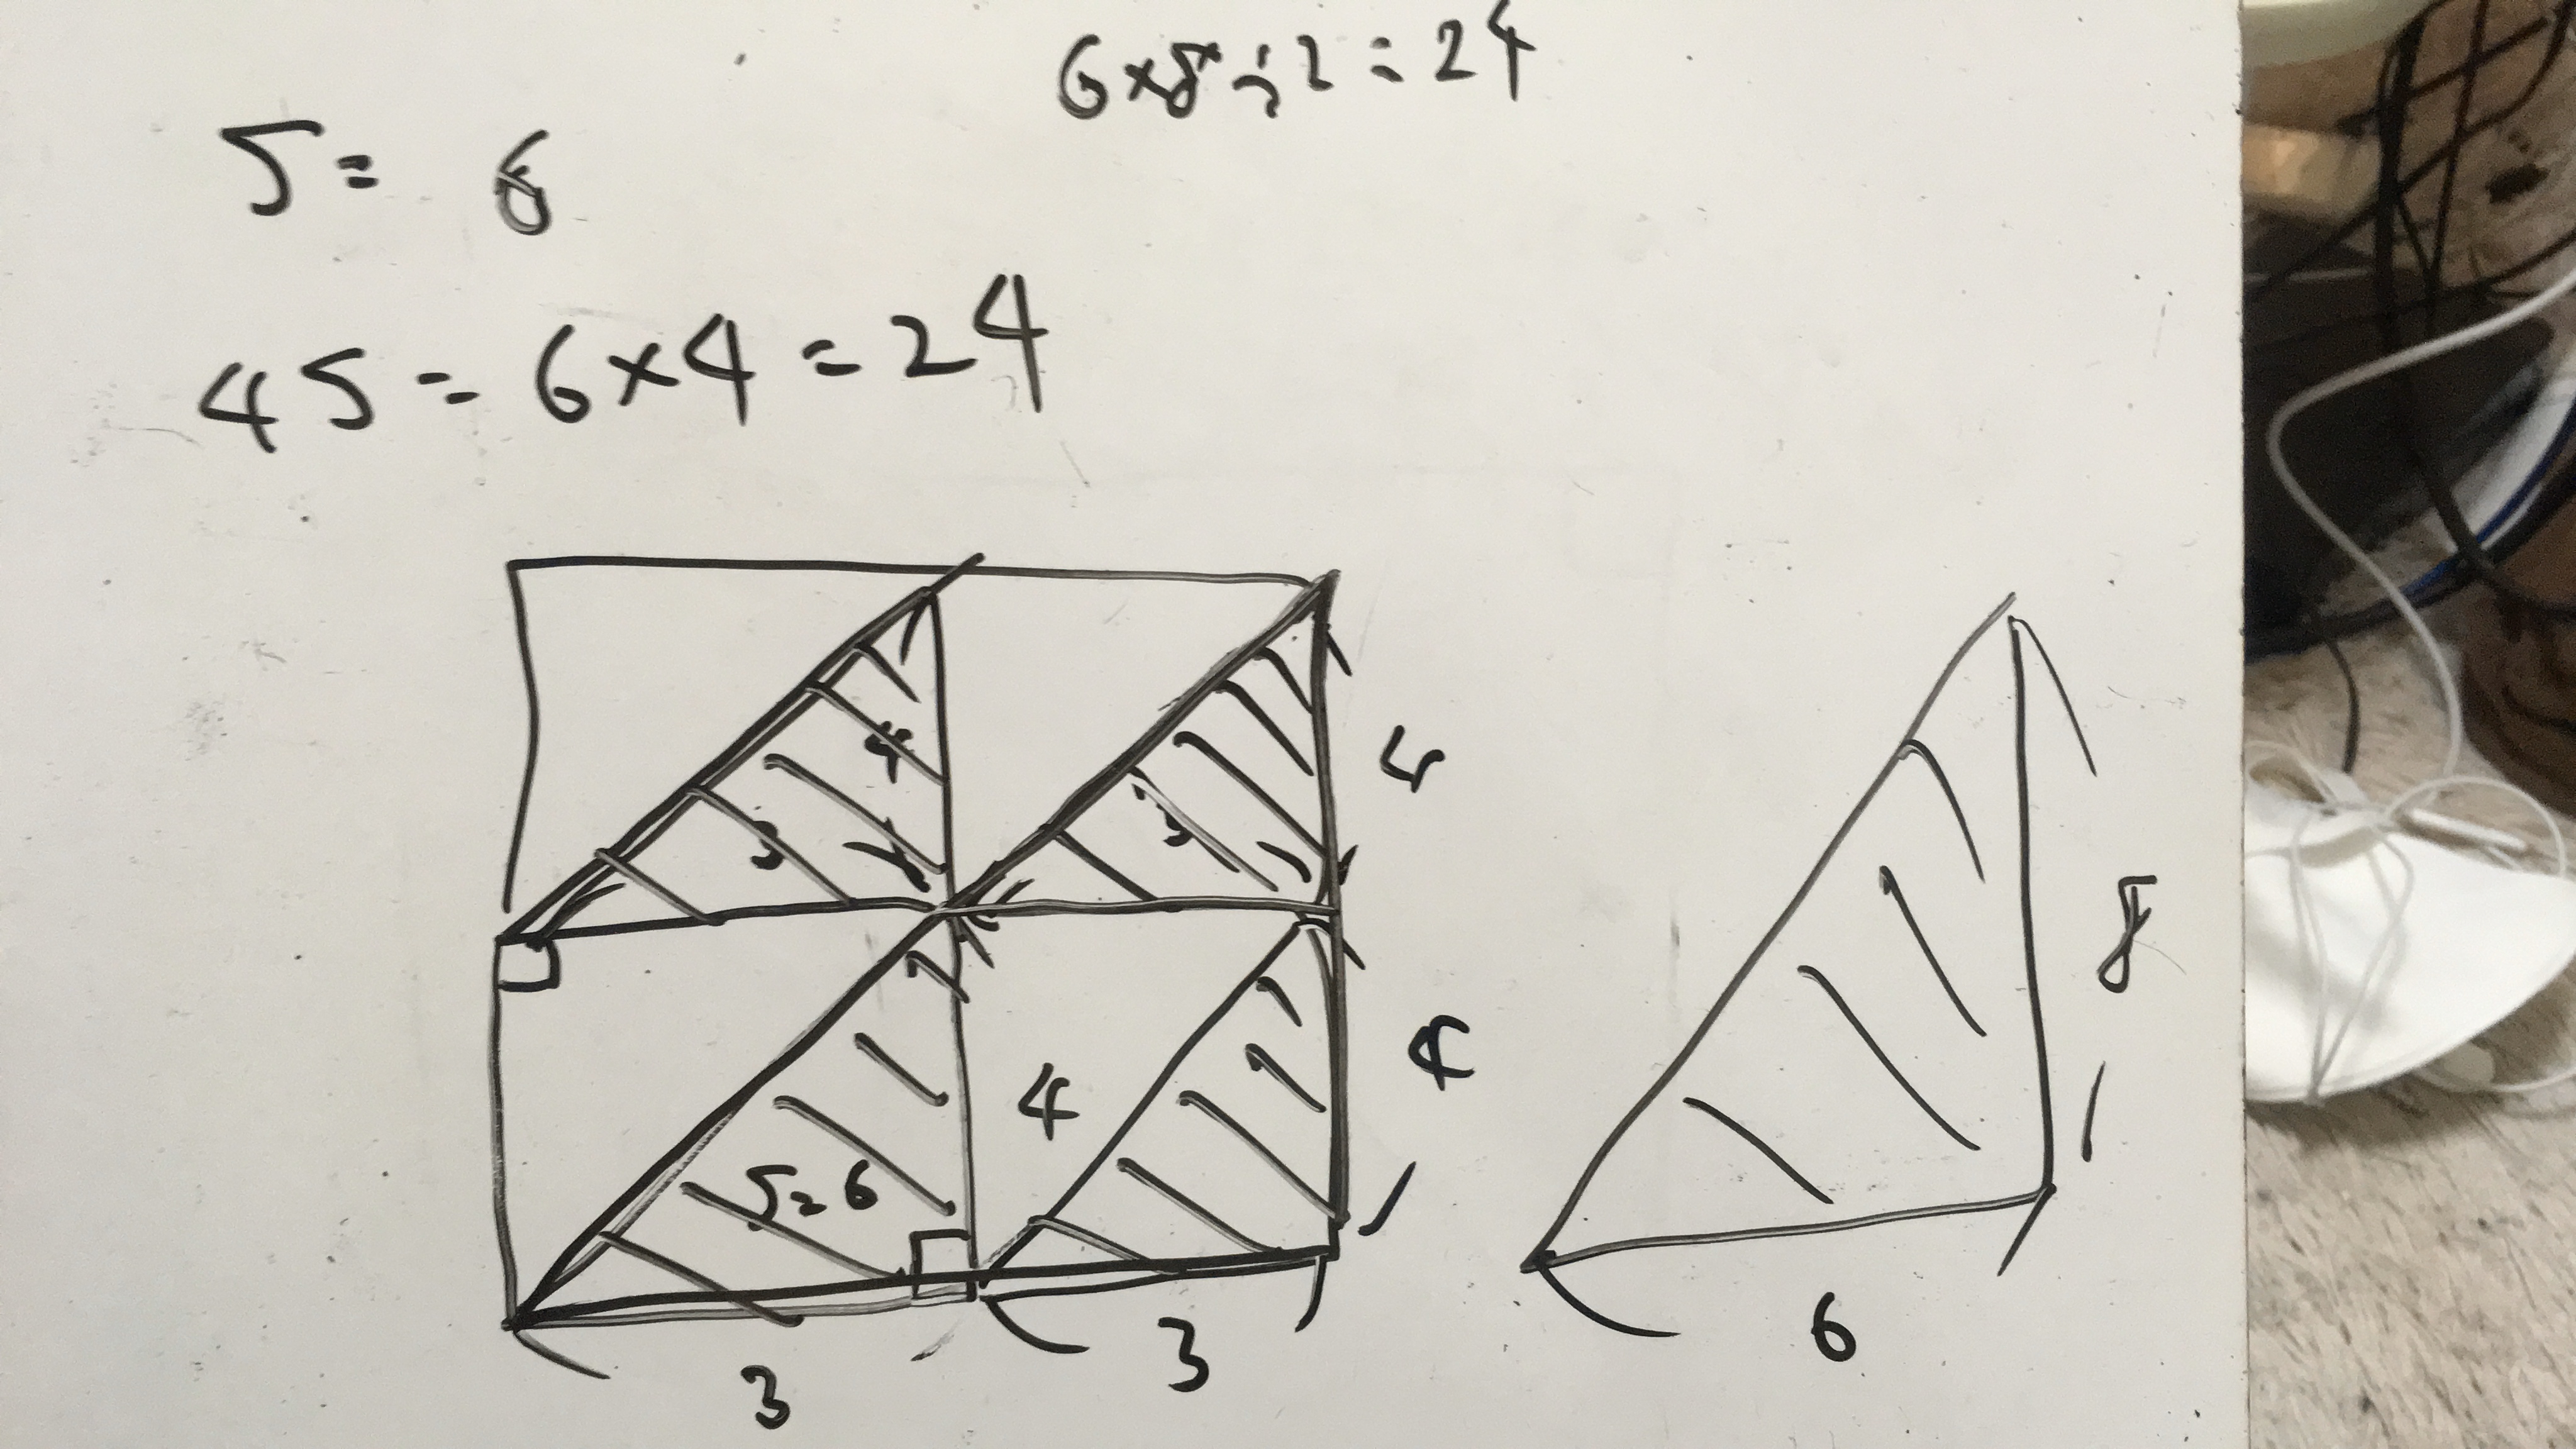 6×8÷2=24
S= 6
4S= 6×4=24
4
4
3
S
8
4
4
S=6
3
3
6